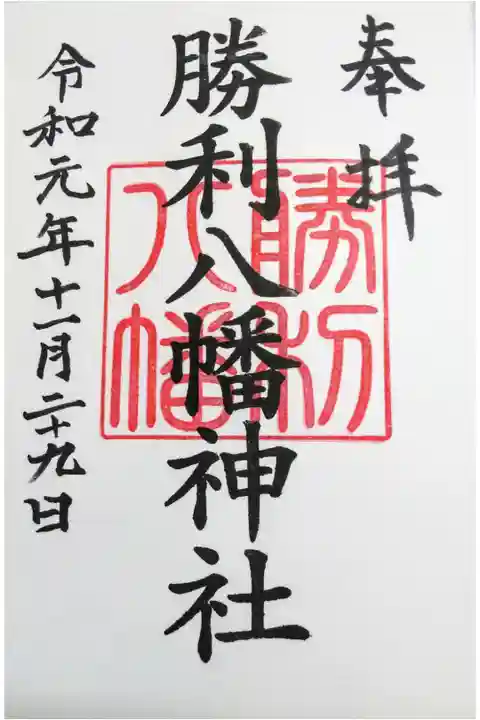 奉拝
勝利八幡神社
勝利
八幡
令和元年十一月二十九日